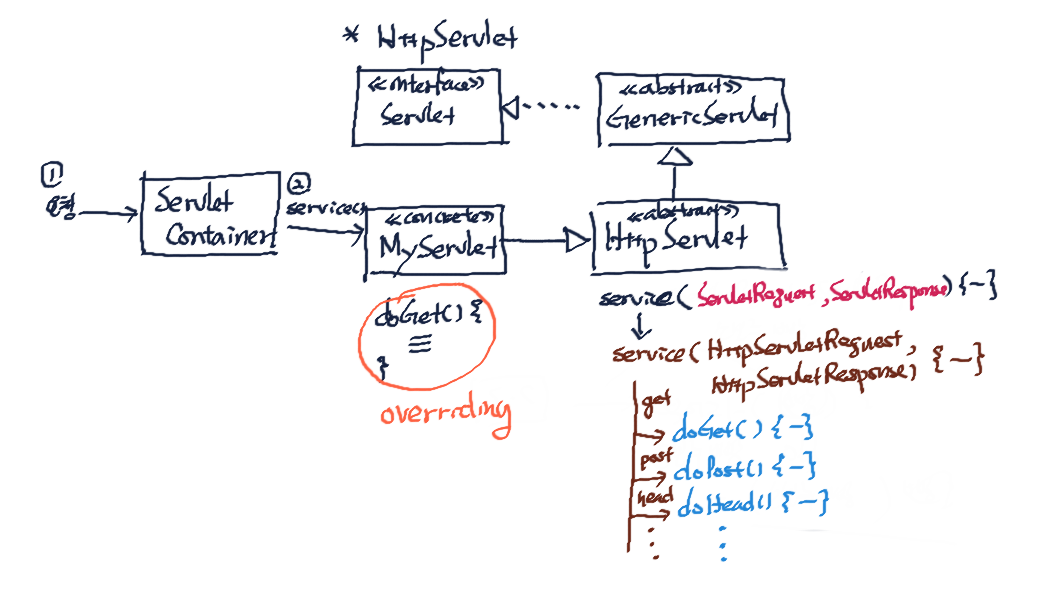 * HttpServlet
<<interface>>
Servlet
<<abstract>>
GenericServlet
①
요청
Servlet
Container
②
service()
<<concrete>>
MyServlet
<<abstract>>
HttpServlet
doGet() {
}
overriding
service(ServletRequest, ServletResponse) {~}
service(HttpServletRequest,
HttpServletResponse) {~}
get
doGet() {~}
post
doPost() {~}
head
doHead() {~}